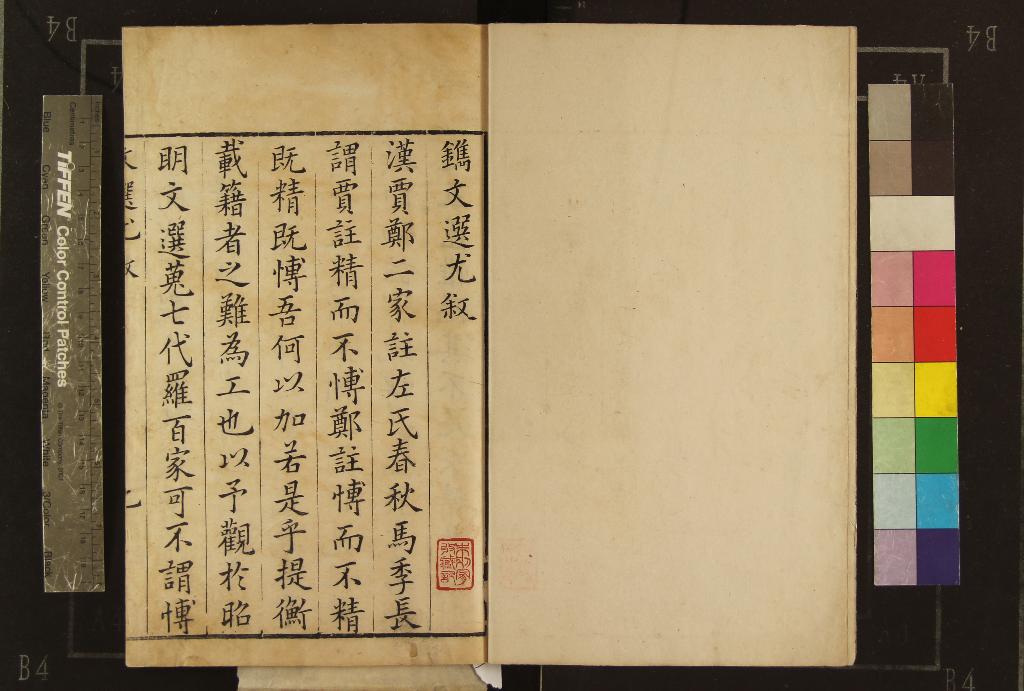 鐫文選尤叙
漢賈鄭二家註左氏春秋馬季長
謂賈註精而不愽鄭註愽而不精
既精既愽吾何以加若是乎提衡
載籍者之難為工也以予觀於昭
明文選蒐七代羅百家可不謂愽
文選尤叙
TIFFEN Color Control Patches
Centimetres
Inches
Blue
Cyan
Green
Yellow
Magenta
White
3/Color
Black
B4
B4
B4
B4
A4